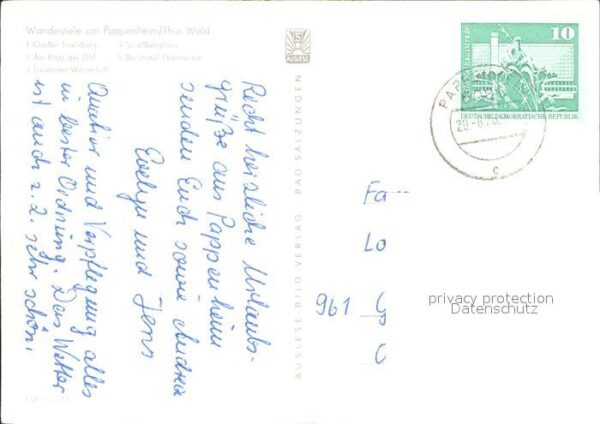 Wanderziele um Pappenheim/Thür. Wald
1 Großer Inselsberg 4 Spießberghaus
2 Am Platz der DSF 5 Berghotel Ebertswiese
3 Trusetaler Wasserfall
AUSLESE-BILD-VERLAG · BAD SALZUNGEN
10
DEUTSCHE DEMOKRATISCHE REPUBLIK
20.-8.
c
Recht herzliche Urlaubs-
grüße aus Pappenheim
senden Euch sowie Andrea
Evelyn und Jens
Quartier und Verpflegung alles
in bester Ordnung. Das Wetter
ist auch z. Z. sehr schön.
Fa
Lo
961 G
privacy protection
Datenschutz